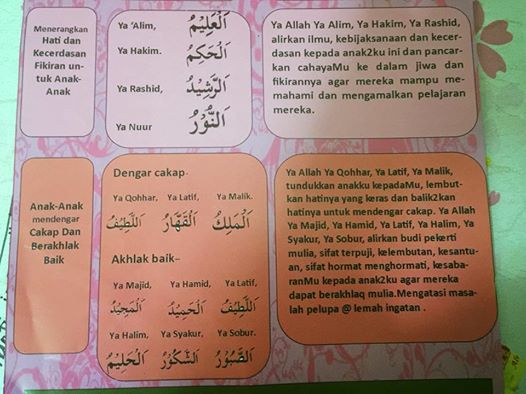 Menerangkan
Hati dan
Kecerdasan
Fikiran un-
tuk Anak-
Anak
Ya 'Alim,
اَلْعَلِيْمُ
Ya Hakim.
اَلْحَكِيْمُ
Ya Rashid,
اَلرَّشِيْدُ
Ya Nuur
اَلنُّوْرُ
Ya Allah Ya Alim, Ya Hakim, Ya Rashid,
alirkan ilmu, kebijaksanaan dan kecer-
dasan kepada anak2ku ini dan pancar-
kan cahayaMu ke dalam jiwa dan
fikirannya agar mereka mampu me-
mahami dan mengamalkan pelajaran
mereka.
Anak-Anak
mendengar
Cakap Dan
Berakhlak
Baik
Dengar cakap-
Ya Qohhar, Ya Latif, Ya Malik.
اَلْمَلِكُ اَلْقَهَّارُ اَللَّطِيْفُ
Akhlak baik–
Ya Majid, Ya Hamid, Ya Latif,
اَللَّطِيْفُ اَلْحَمِيْدُ اَلْمَجِيْدُ
Ya Halim, Ya Syakur, Ya Sobur.
اَلصَّبُوْرُ اَلشَّكُوْرُ اَلْحَلِيْمُ
Ya Allah Ya Qohhar, Ya Latif, Ya Malik,
tundukkan anakku kepadaMu, lembut-
kan hatinya yang keras dan balik2kan
hatinya untuk mendengar cakap. Ya Allah
Ya Majid, Ya Hamid, Ya Latif, Ya Halim, Ya
Syakur, Ya Sobur, alirkan budi pekerti
mulia, sifat terpuji, kelembutan, kesantu-
an, sifat hormat menghormati, kesaba-
ranMu kepada anak2ku agar mereka
dapat berakhlaq mulia.Mengatasi masa-
lah pelupa @ lemah ingatan .